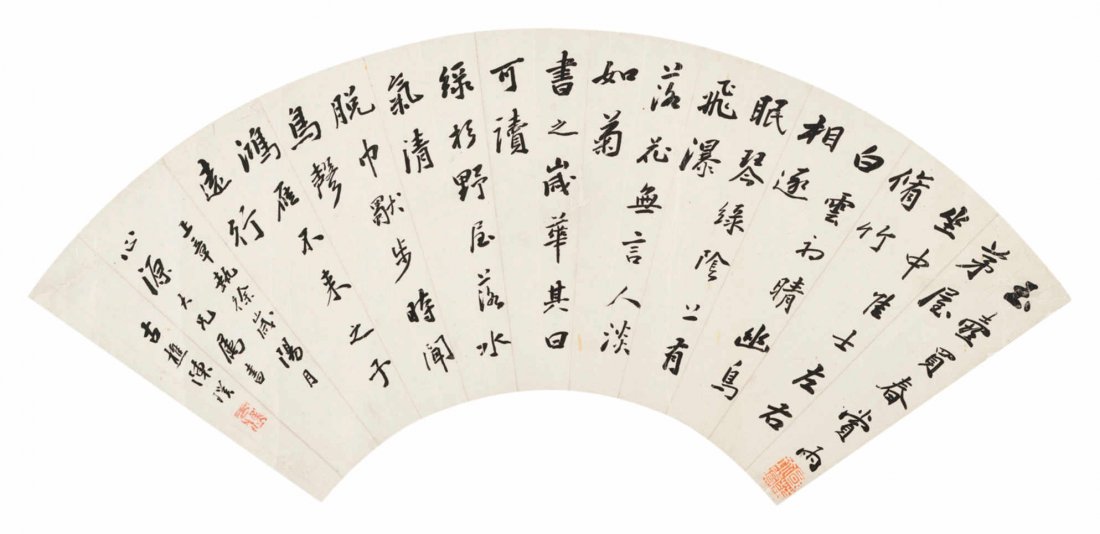 玉壺買春賞雨
茅屋
坐中佳士左右
脩竹
白雲初晴幽鳥
相逐
眠琴綠陰上有
飛瀑
落花無言人淡
如菊
書之歲華其曰
可讀
綠杉野屋落水
氣清
脫巾默步時聞
鳥聲
鴻雁不來之子
遠行
上章執徐歲陽月
心源大兄属書
古樵陳璞